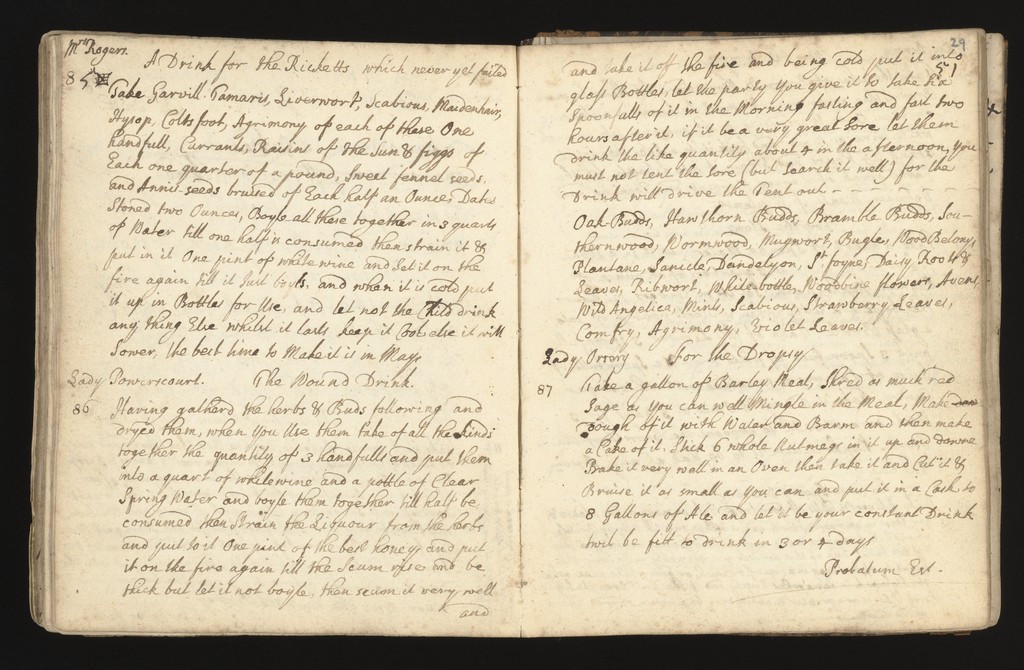 Mrs Rogers.
A Drink for the Ricketts which never yet failed
85
Take Harvill. Tamaris, Liverwort, Scabious, Maidenhair,
Hysop, Coltsfoot, Agrimony of each of these One
handfull, Currants, Raisins of the Sun & figgs of
Each one quarter of a pound, Sweet fennel seeds,
and Annis seeds bruised of Each half an Ounce, Dates
Stoned two Ounces, Boyle all these together in 3 quarts
of Water till one half is consumed then strain it &
put in it One pint of white wine and Set it on the
fire again till it Just boyls, and when it is cold put
it up in Bottles for Use, and let not the Child drink
any thing Else whilst it lasts keep it Cool else it will
Sower, the best time to Make it is in May
Lady Powerscourt. The Wound Drink.
86 Having gatherd the herbs & Buds following and
dryed them, when you Use them take of all the kinds
together the quantity of 3 handfulls and put them
into a quart of white wine and a pottle of Clear
Spring Water and boyle them together till half be
consumed then Strain the Liquour from the herbs
and put to it One pint of the best honey and put
it on the fire again till the Scum rise and be
thick but let it not boyle, then scum it very well
and
29
51
and take it off the fire and being cold put it into
glass Bottles, let the party you give it to take six
Spoonfulls of it in the Morning fasting and fast two
hours after it, if it be a very great Sore let them
drink the like quantity about 4 in the afternoon, You
must not tent the Sore (but Search it well) for the
Drink will drive the Tent out - - - - - - -
Oak-Budds, Hawthorn Budds, Bramble Budds, Sou-
thernwood, Wormwood, Mugwort, Bugle, Wood Betony,
Plantane, Sanicle, Dandelyon, St foyne, Daisy Roots &
Leaves, Ribwort, White-bottle, Woodbine flowers, Avens
Wild Angelica, Mints, Scabious, Strawberry Leaves,
Comfry, Agrimony, Violet Leaves.
Lady Orrery For the Dropsy
87 Take a gallon of Barley Meal, Shred as much red
Sage as you can well Mingle in the Meal, Make
dough of it with Water and Barm and then make
a Cake of it. Stick 6 whole Nutmegs in it up and downe
Bake it very well in an Oven then take it and Cut it &
Bruise it as small as you can and put it in a Cask to
8 Gallons of Ale and let it be your constant Drink
twil be fitt to drink in 3 or 4 days
Probatum Est.